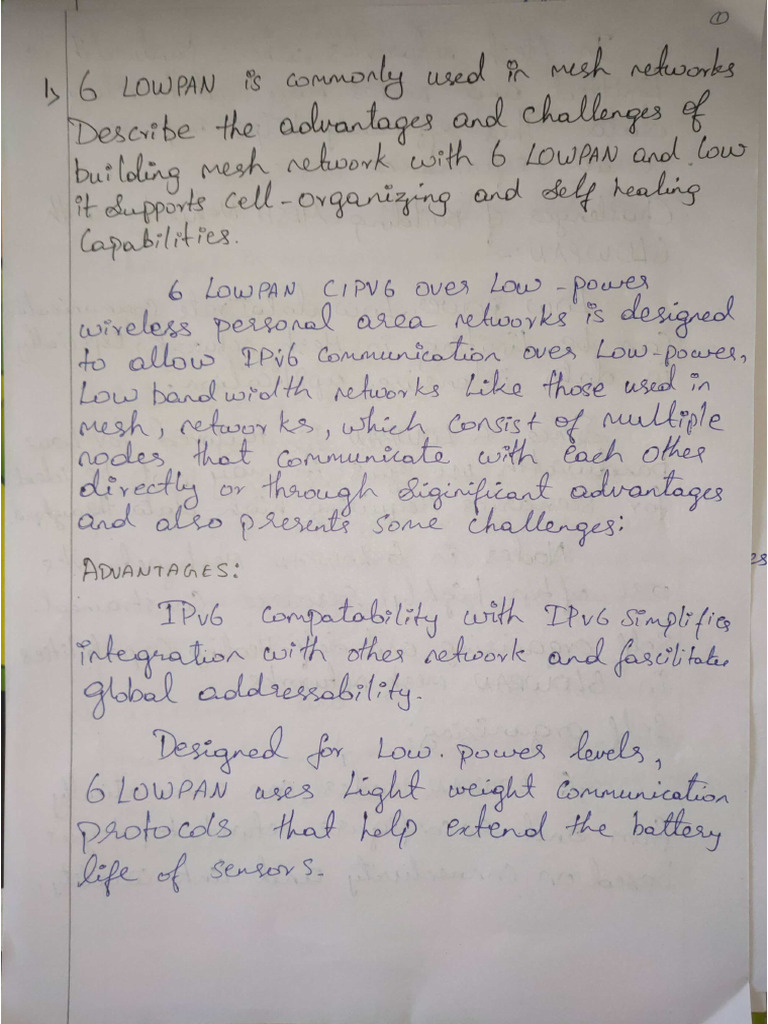 ①
1, 6 LOWPAN is commonly used in mesh networks
Describe the advantages and challenges of
building mesh network with 6 LOWPAN and low
it supports cell-organizing and self healing
Capabilities.
6 LOWPAN CIPV6 over Low-power
wireless personal area networks is designed
to allow IPv6 communication over Low-power,
Low bandwidth networks Like those used in
mesh, networks, which consist of multiple
nodes that communicate with each other
directly or through Siginificant advantages
and also presents some challenges:
ADVANTAGES:
IPv6 compatability with IPV6 simplifies
integration with other network and fascilitates
global addressability.
Designed for Low. power levels,
6 LOWPAN uses Light weight communication
protocols that help extend the battery
life of sensors.
es